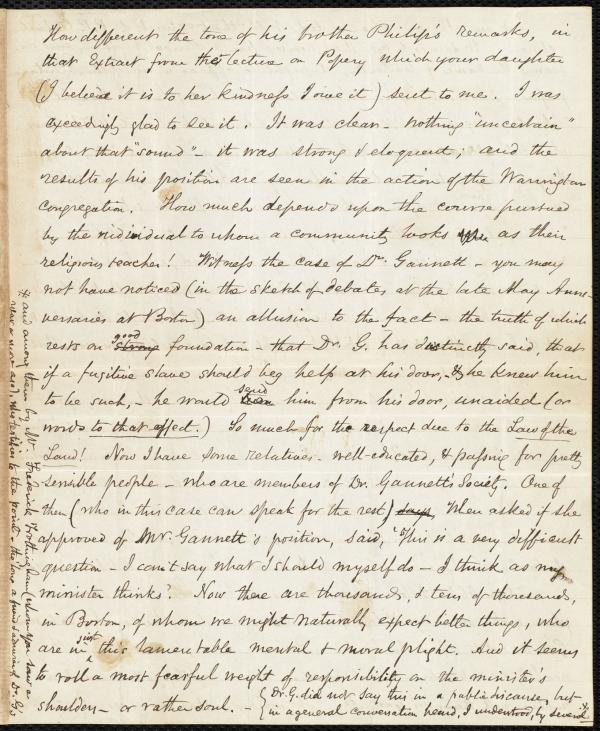 How different the tone of his brother Philip's remarks, in
that Extract from the lecture on Popery which your daughter
(I believe it is to her kindness I owe it) sent to me. I was
exceedingly glad to see it. It was clear - nothing "uncertain"
about that "sound" - it was strong & eloquent; and the
results of his position are seen in the action of the Warrington
Congregation. How much depends upon the course pursued
by the individual to whom a community looks as their
religious teacher! Witness the case of Dr. Gannett - you may
not have noticed (in the sketch of debates at the late May Anni-
versaries at Boston) an allusion to the fact - the truth of which
rests on strong good foundation - that Dr. G. has distinctly said, that
if a fugitive slave should beg help at his door, & he knew him
to be such, - he would send him from his door, unaided (or
words to that effect.) So much for the respect due to the Law of the
Land! Now I have some relatives - well-educated, & passing for pretty
sensible people - who are members of Dr. Gannett's Society. One of
them (who in this case can speak for the rest) says, when asked if she
approved of Mr. Gannett's position, said, "This is a very difficult
question - I can't say what I should myself do - I think as my
minister thinks". Now there are thousands, & tens of thousands,
in Boston, of whom we might naturally expect better things, who
are in just this lamentable mental & moral plight. And it seems
to roll a most fearful weight of responsibility on the minister's
shoulders - or rather soul. -
{Dr. G. did not say this in a public discourse, but
in a general conversation heard, I understood, by several &
& and among them by Mr. Frederick Frothingham (whom you saw a
year or more ago), who testifies to the point - the a friend & admirer of Dr. G's